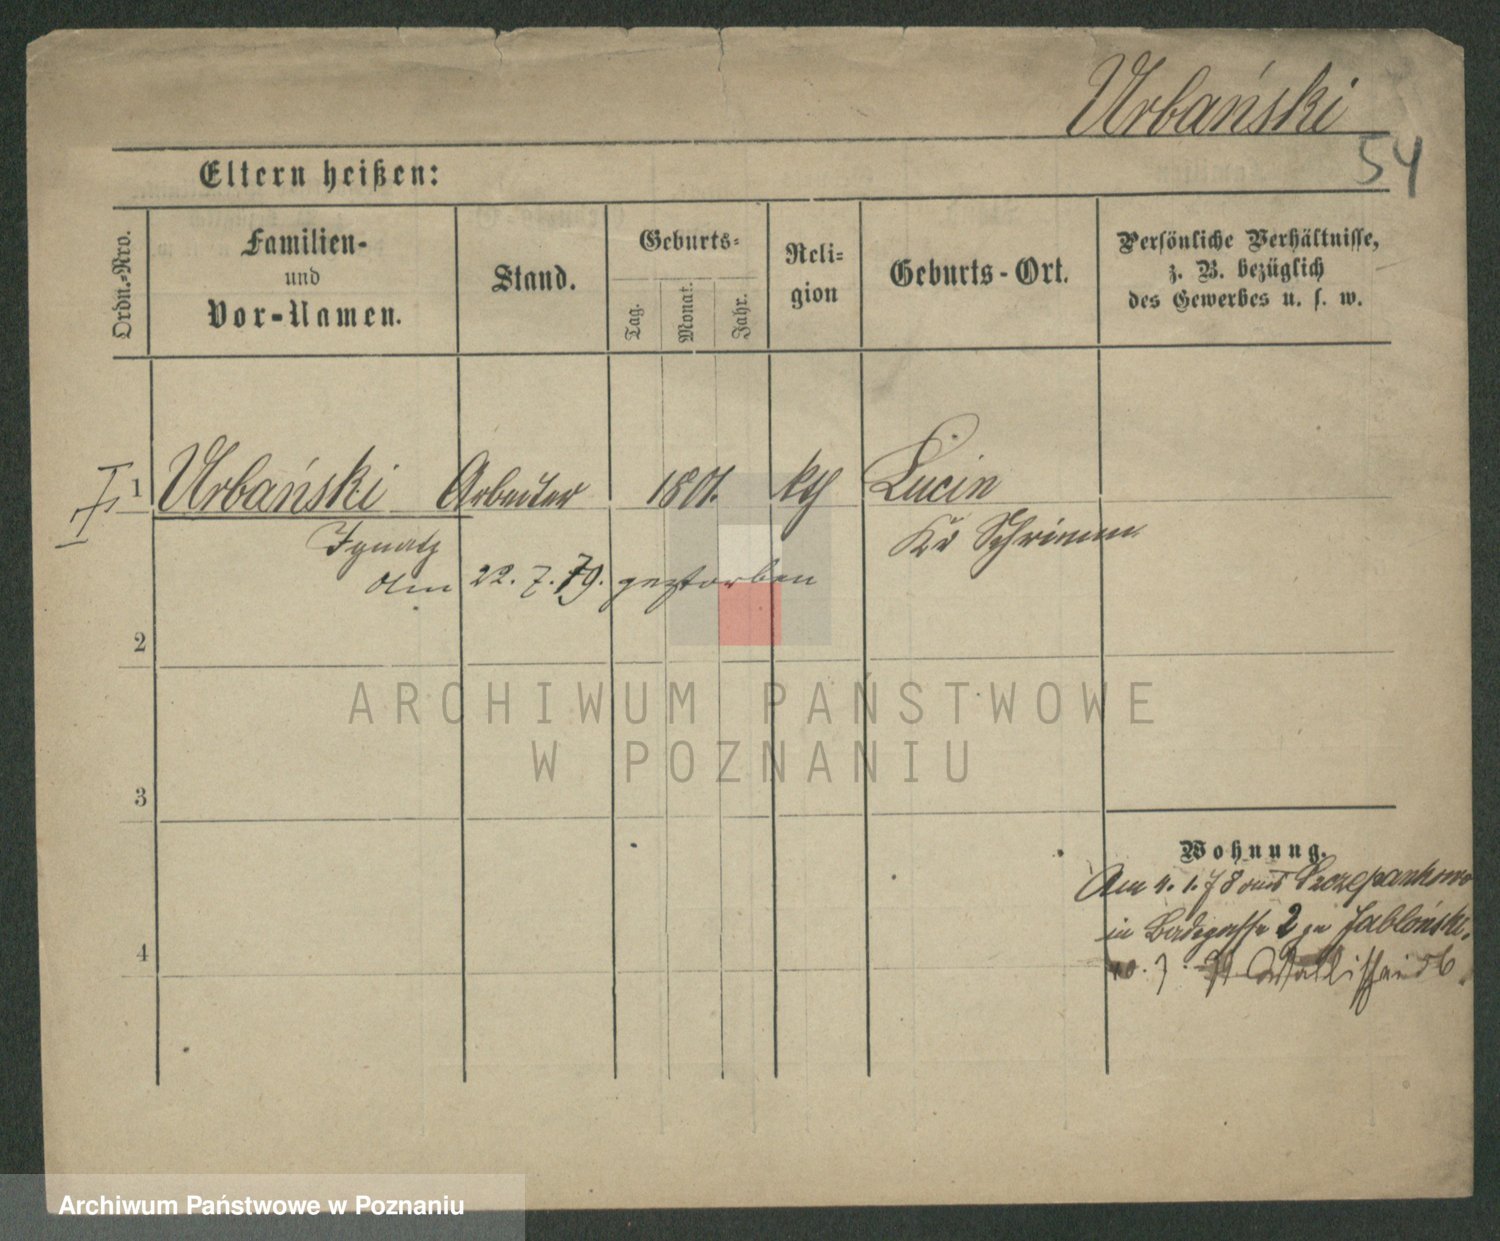 Urbański
54
Eltern heißen:
Ordn.-Nro.
Familien-
und
Vor-Namen.
Stand.
Geburts-
Tag.
Monat.
Jahr.
Reli-
gion
Geburts-Ort.
Persönliche Verhältnisse,
z. B. bezüglich
des Gewerbes u. s. w.
1 Urbański Arbeiter 1801. kth Lucin
Ignatz Kr Schrimm
Am 22. 7. 79. gestorben
2
ARCHIWUM PAŃSTWOWE
W POZNANIU
3
Wohnung.
Am 4. 1. 78 aus Szczepankowo
in 2 zu Jabloński.
4
Wallischei
Archiwum Państwowe w Poznaniu